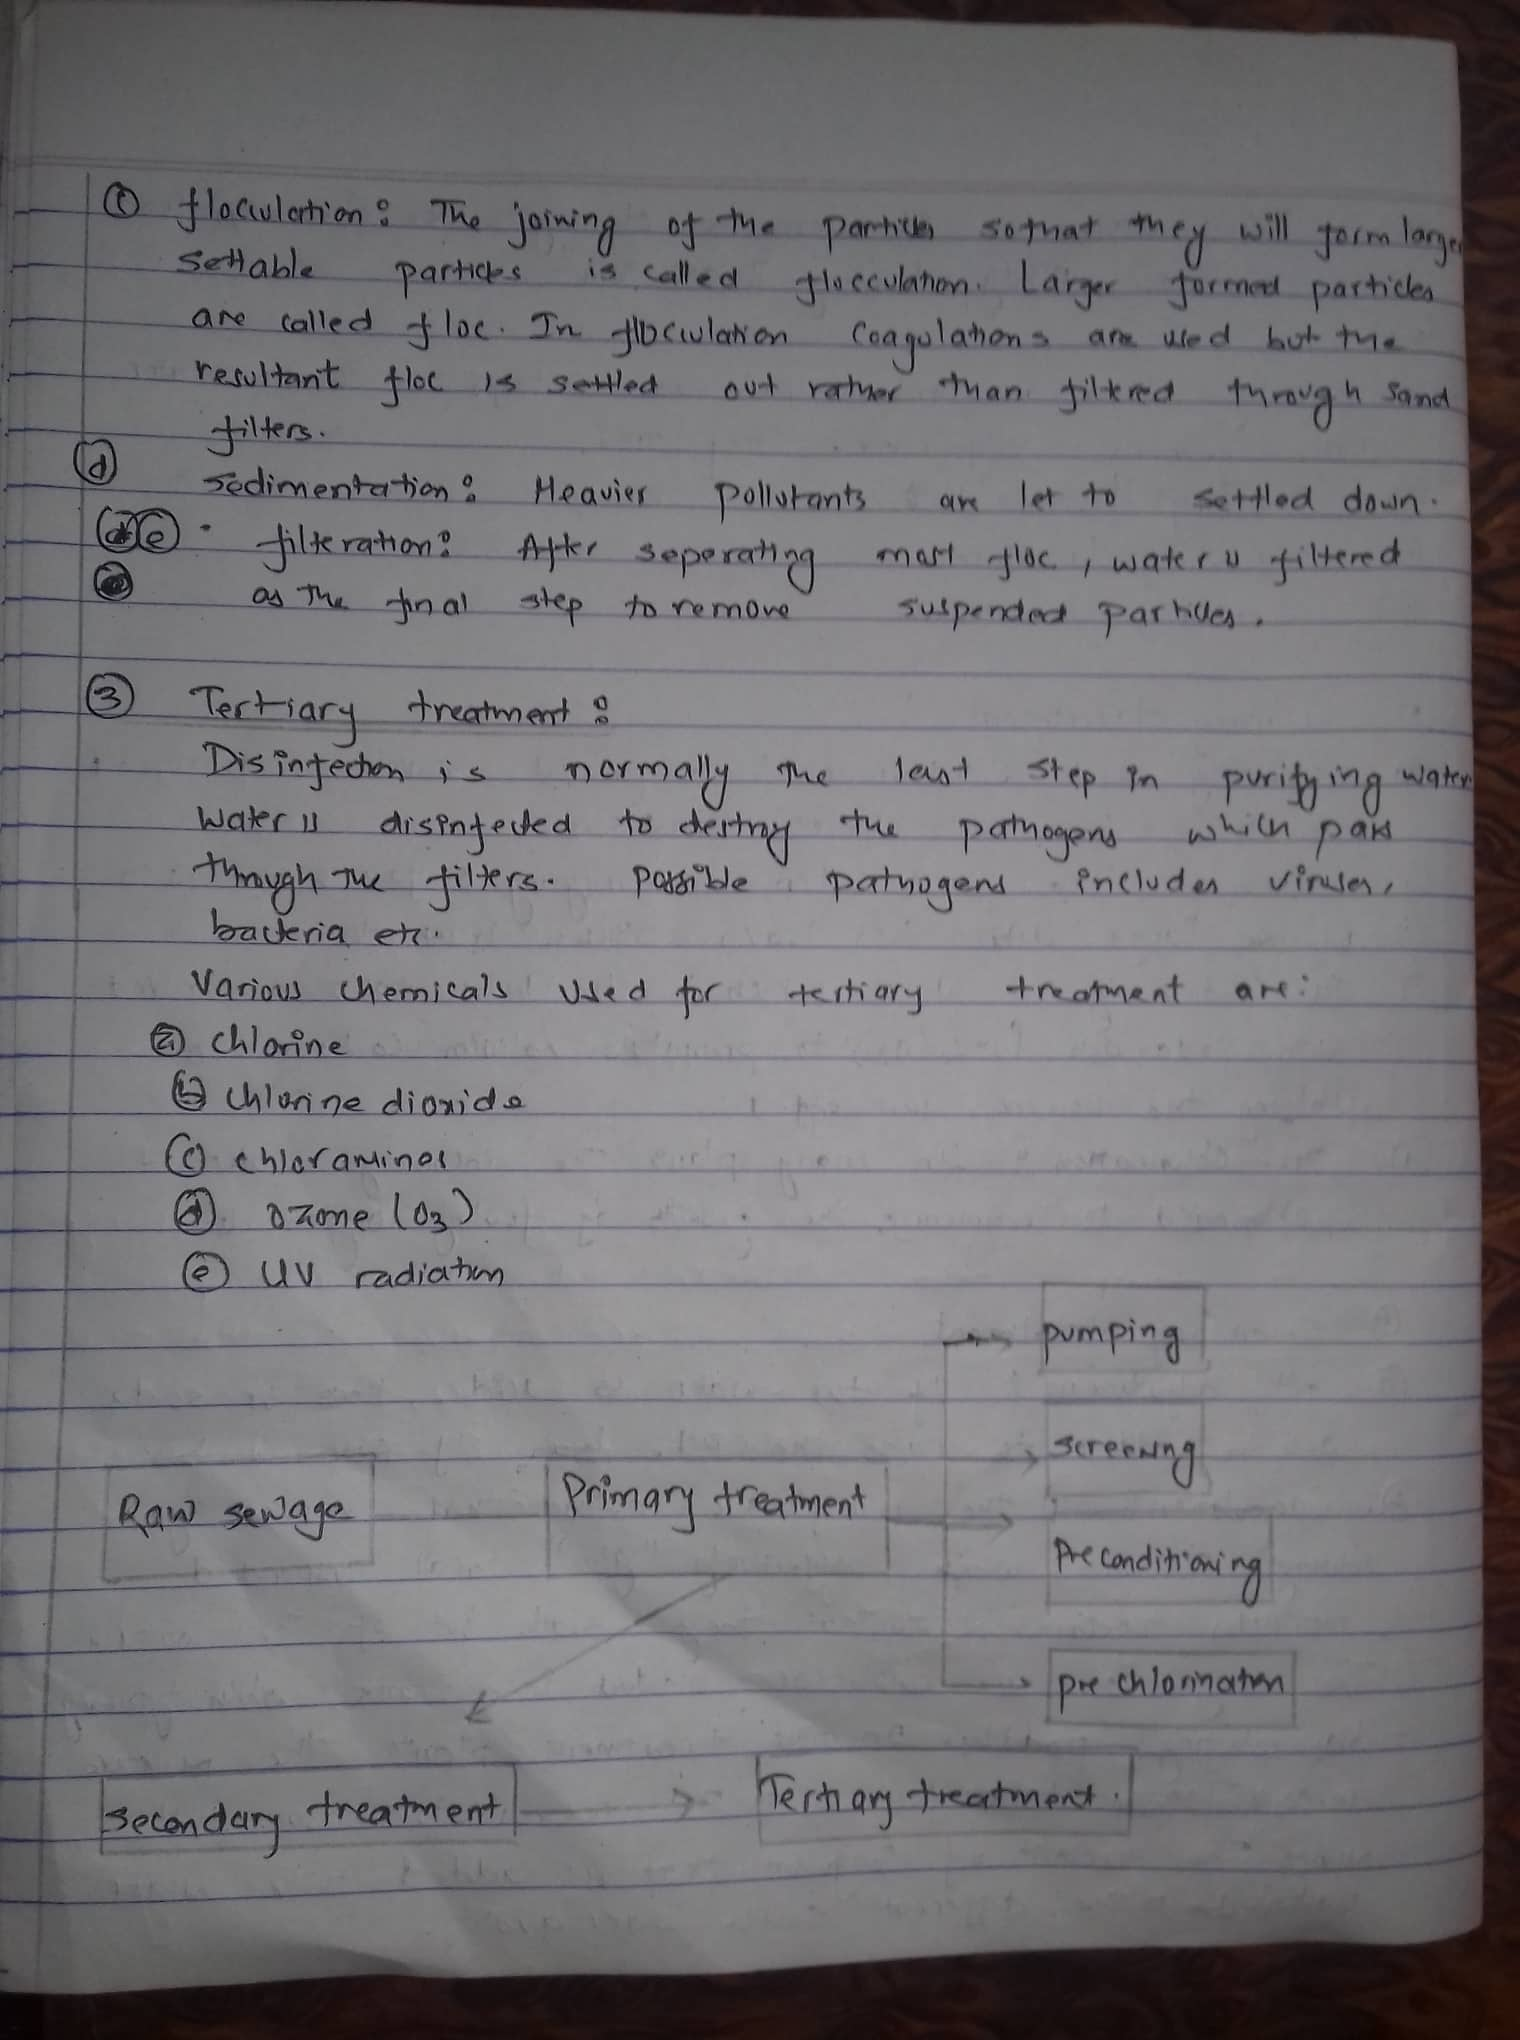 (c) flocculation: The joining of the particles so that they will form larger
settable particles is called flocculation. Larger formed particles
are called floc. In flocculation coagulations are used but the
resultant floc is settled out rather than filtered through sand
filters.
(d) sedimentation: Heavier pollutants are let to settled down.
(e) filteration: After seperating most floc, water is filtered
as the final step to remove suspended particles.
(3) Tertiary treatment:
Disinfection is normally the last step in purifying water
Water is disinfected to destroy the pathogens which pass
through the filters. Possible pathogens includes viruses,
bacteria etc.
Various chemicals used for tertiary treatment are:
(a) chlorine
(b) chlorine dioxide
(c) chloramines
(d) ozone (O3)
(e) UV radiation
pumping
screening
Raw sewage Primary treatment
Preconditioning
pre chlorination
secondary treatment Tertiary treatment.